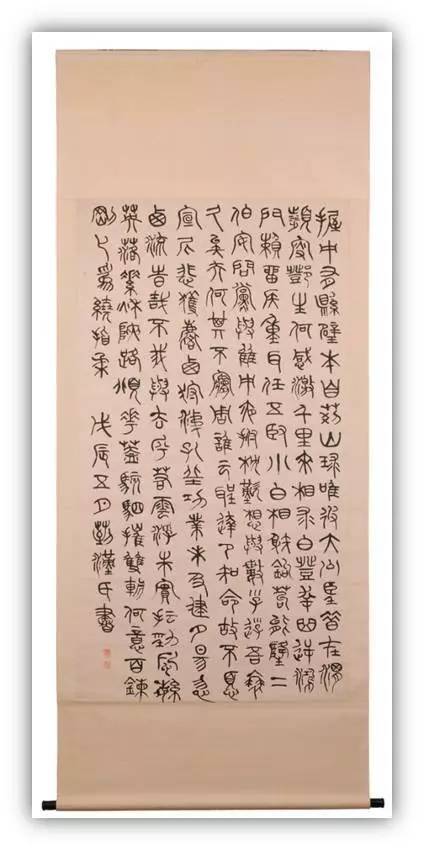 握中有縣璧本自荊山球唯彼大公望昔在渭
濱叟鄧生何感激千里來相求白登幸曲逆鴻
門賴留侯重耳任五臣小白相射鉤苟能隆二
伯安問黨與讎中夜撫枕歎想與數子遊吾衰
久矣夫何其不夢周誰云聖達卩知命故不憂
宣尼悲獲麟西狩涕孔丘功業未及建夕易忽
西流時哉不我與去乎若雲浮朱實隕勁風繁
英落素秋狹路傾華蓋駭駟摧雙輈何意百鍊
剛化為繞指柔 戊辰五月漢民書